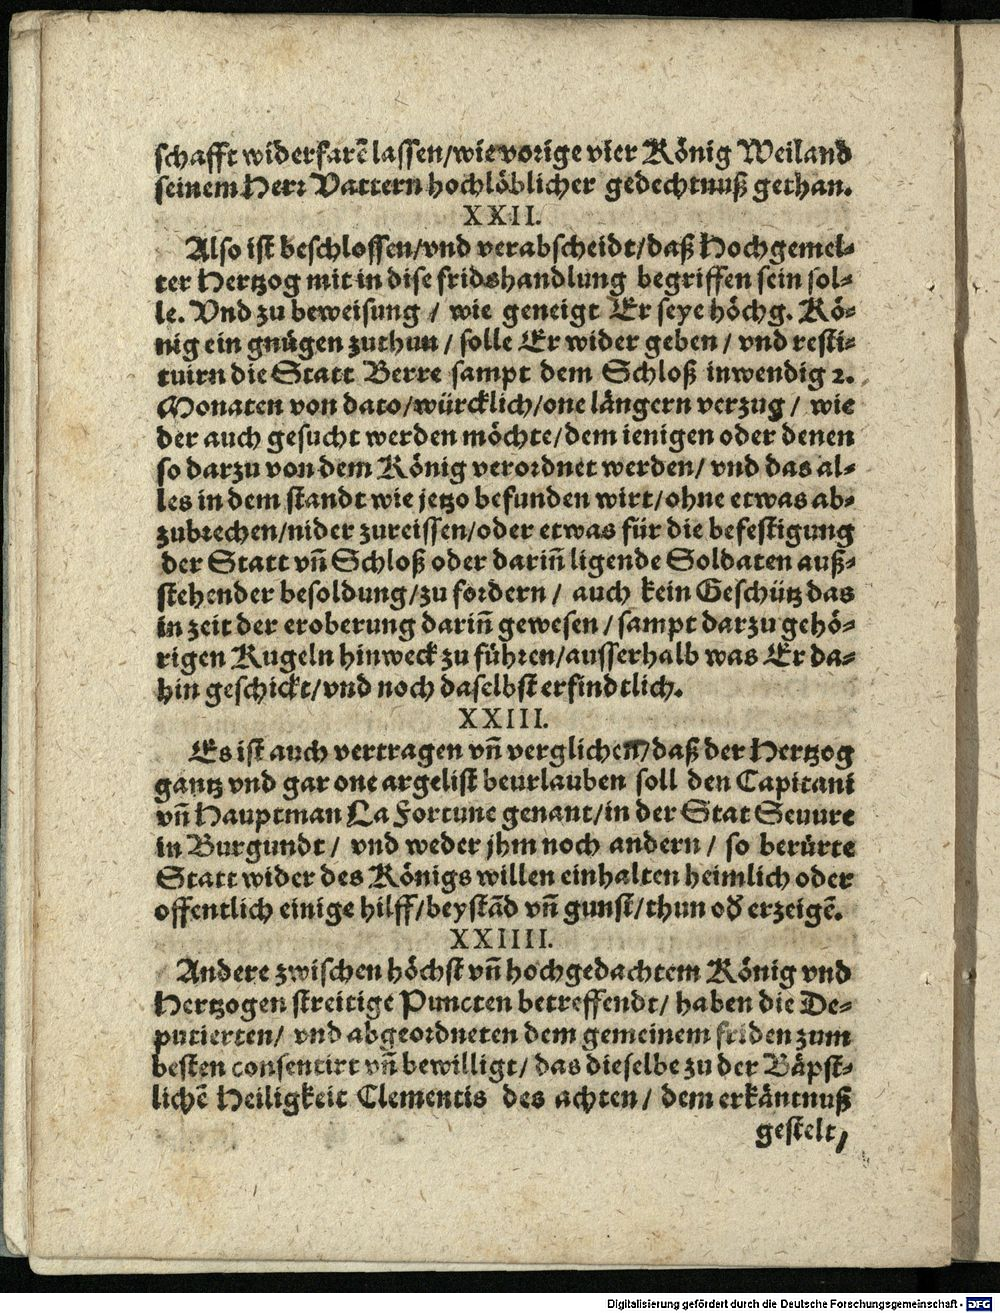 schafft widerfarē lassen/wie vorige vier König Weiland
seinem Herr Vattern hochlöblicher gedechtnuß gethan.
XXII.
Also ist beschlossen/vnd verabscheidt/daß Hochgemel-
ter Hertzog mit in dise fridshandlung begriffen sein sol-
le. Vnd zu beweisung / wie geneigt Er seye höchg. Kö-
nig ein gnügen zuthun / solle Er wider geben / vnd resti-
tuirn die Statt Berre sampt dem Schloß inwendig 2.
Monaten von dato/würcklich/one längern verzug / wie
der auch gesucht werden möchte/dem ienigen oder denen
so darzu von dem König verordnet werden/ vnd das al-
les in dem standt wie jetzo befunden wirt/ohne etwas ab-
zubrechen/nider zureissen/oder etwas für die befestigung
der Statt vñ Schloß oder dariñ ligende Soldaten auß-
stehender besoldung/zu fordern / auch kein Geschütz das
in zeit der eroberung dariñ gewesen / sampt darzu gehö-
rigen Kugeln hinweck zu führen/ausserhalb was Er da-
hin geschickt/vnd noch daselbst erfindtlich.
XXIII.
Es ist auch vertragen vñ verglichen/daß der Hertzog
gantz vnd gar one argelist beurlauben soll den Capitani
vñ Hauptman La Fortune genant/in der Stat Seuure
in Burgundt / vnd weder jhm noch andern / so berürte
Statt wider des Königs willen einhalten heimlich oder
offentlich einige hilff/beystād vñ gunst/thun oď erzeigē.
XXIIII.
Andere zwischen höchst vñ hochgedachtem König vnd
Hertzogen streitige Puncten betreffendt/ haben die De-
putierten/ vnd abgeordneten dem gemeinem friden zum
besten consentirt vñ bewilligt/ das dieselbe zu der Bäpst-
lichē Heiligkeit Clementis des achten/ dem erkäntnuß
gestelt,
Digitalisierung gefördert durch die Deutsche Forschungsgemeinschaft - DFG